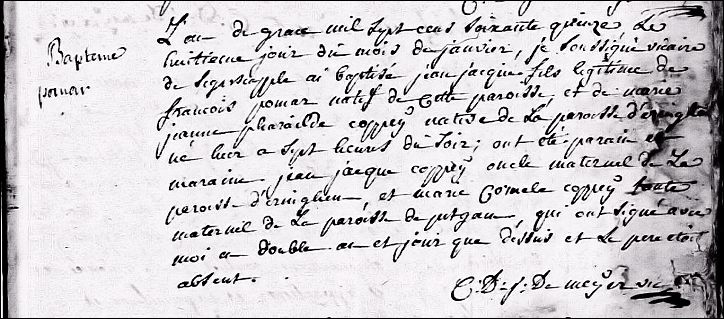 Bapteme
pomar
L'an de grace mil sept cens soixante quinze Le
huitieme jour du mois de janvier, je soussigné vicaire
de Segerscapple ai baptisé jean jacque fils legitime de
francois pomar natif de Cette paroisse, et de marie
jeanne pharailde coppeÿ native de La paroisse d'eringhe
né hier a sept heures du soir; ont été parain et
maraine jean jacque coppeÿ oncle maternel de La
peroisse d'eringhem, et marie Cornele coppeÿ tante
maternel de La paroisse de pitgam, qui ont signé avec
moi en double an et jour que dessus et Le pere etoit
absent.
C: D: j: De meÿer vic